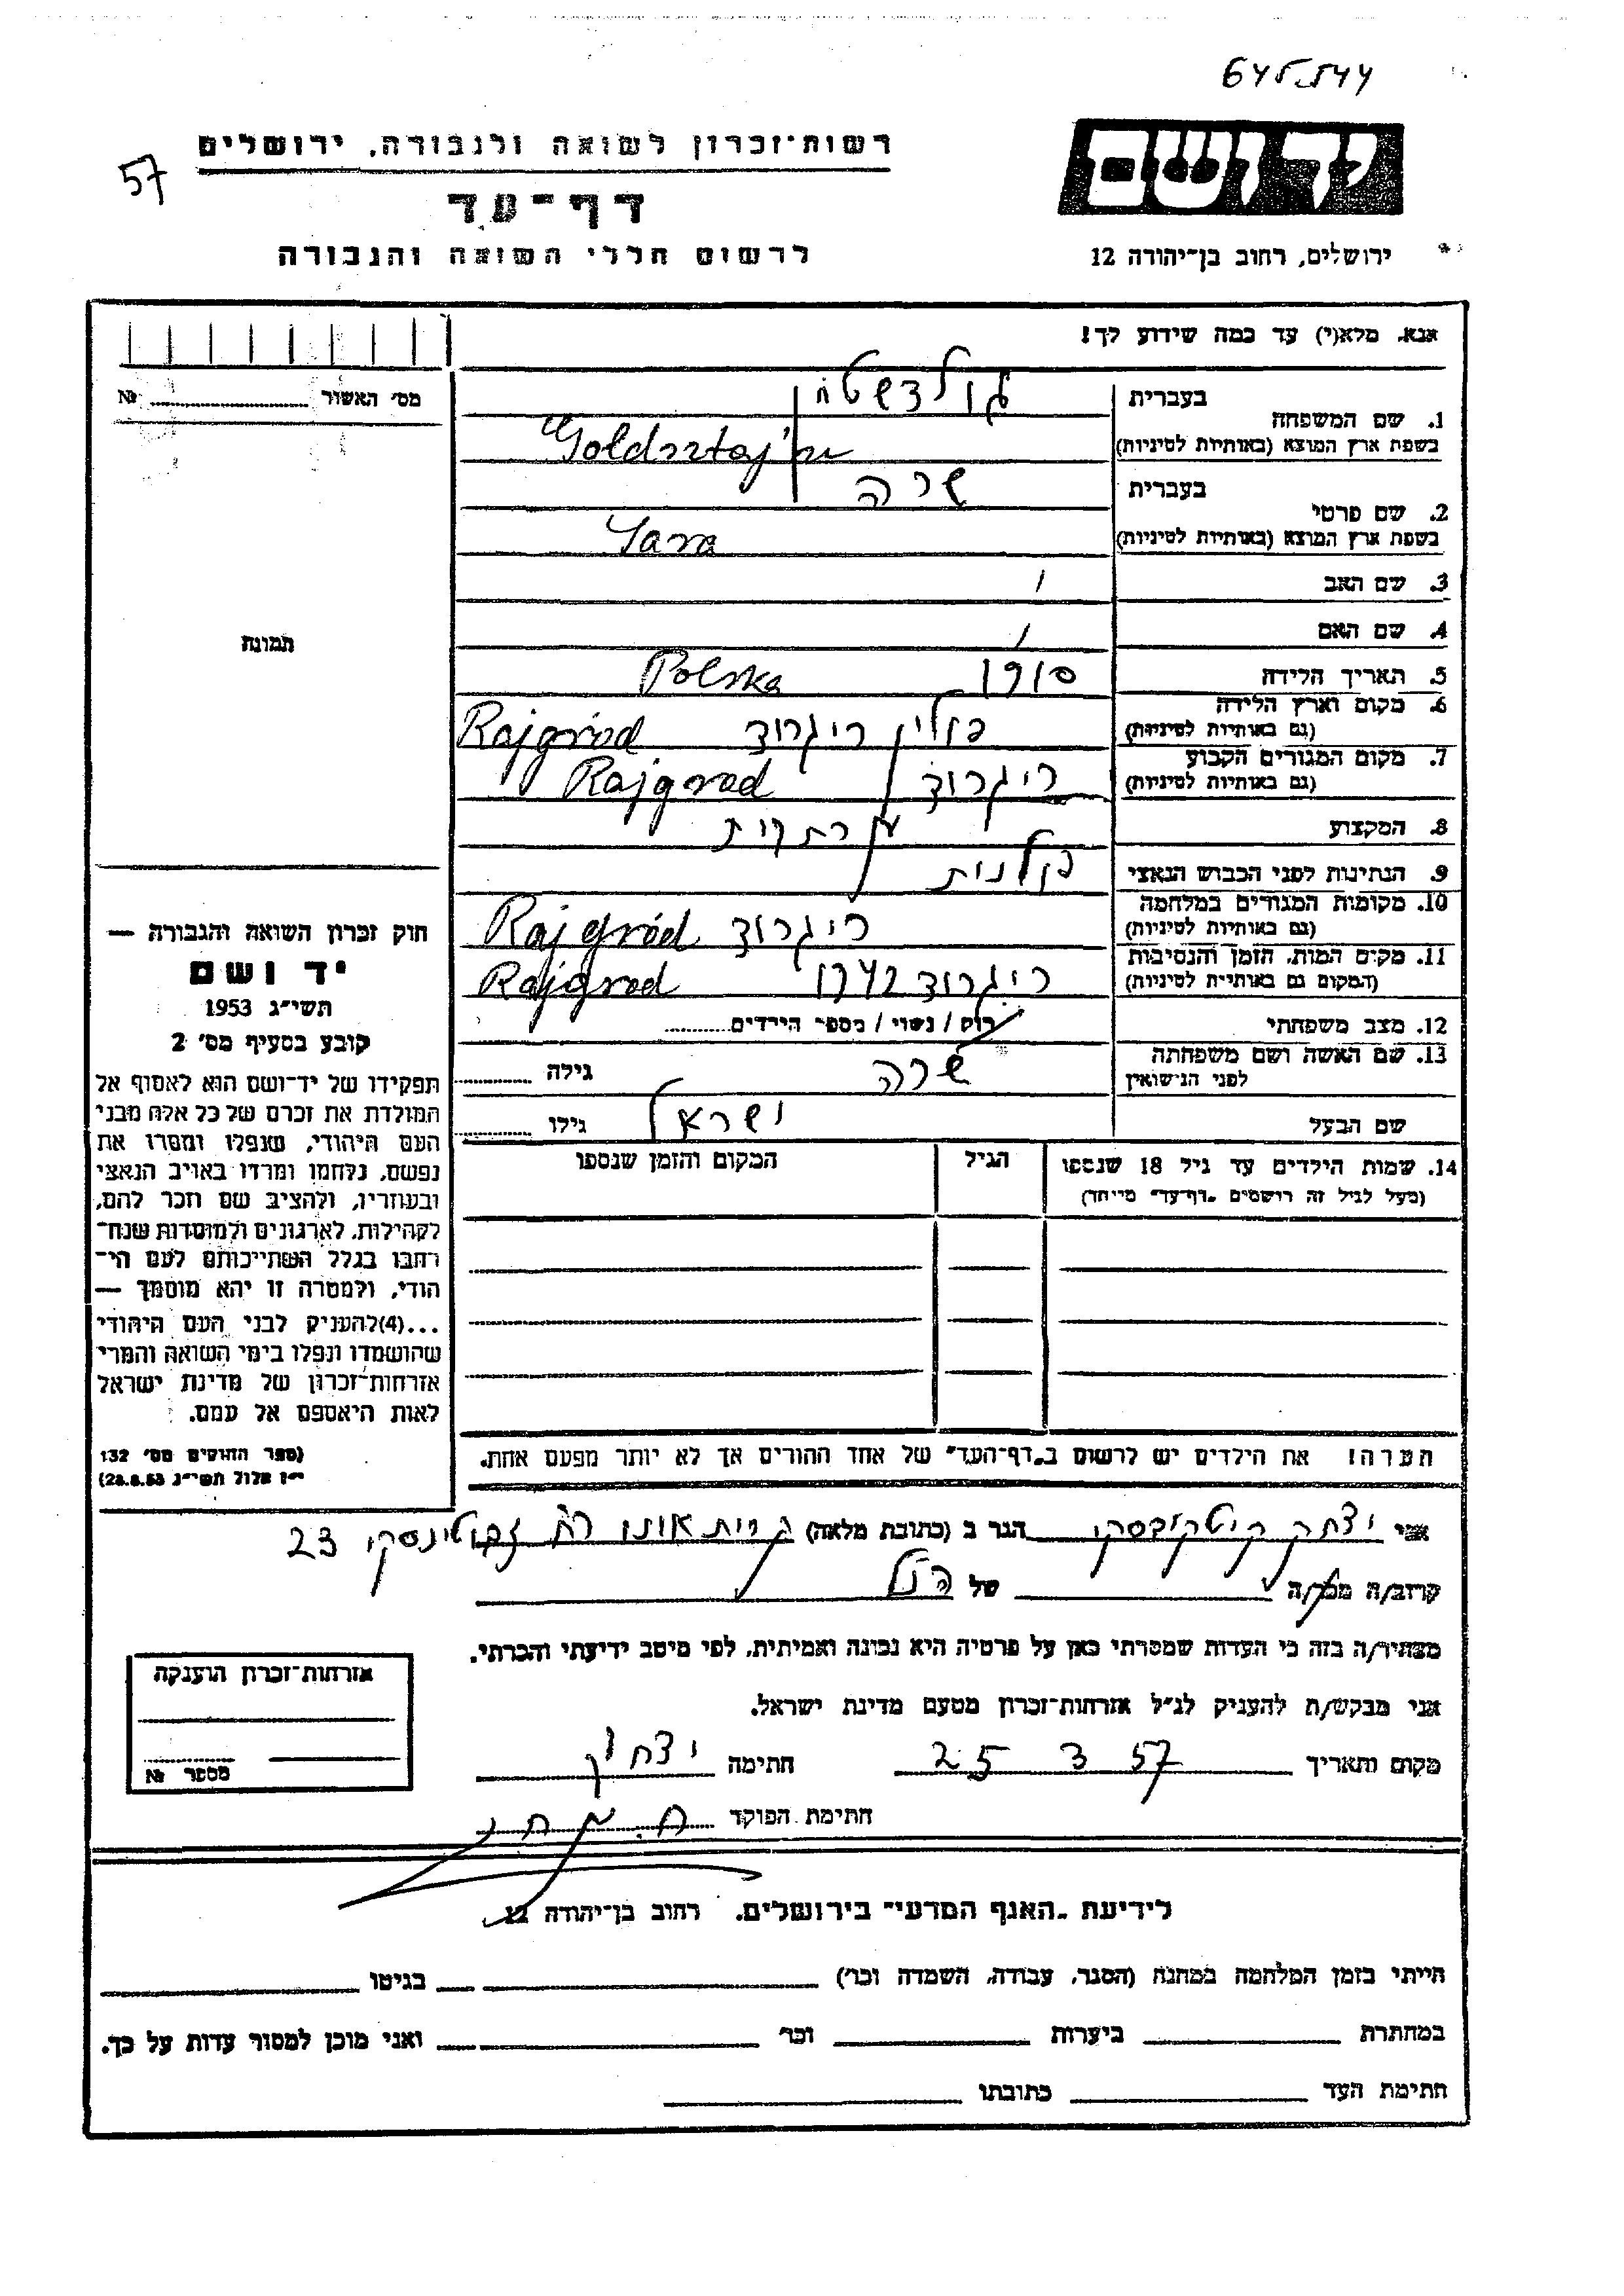 57
רשות־זכרון לשואה ולגבורה, ירושלים
דף־עד
לרשום חללי השואה והגבורה
יד ושם
ירושלים, רחוב בן־יהודה 12
אנא, מלא(י) עד כמה שידוע לך!
מס׳ האשור № 
בעברית
1. שם המשפחה
בשפת ארץ המוצא (באותיות לטיניות) Goldsztaj
בעברית שרה
2. שם פרטי
בשפת ארץ המוצא (באותיות לטיניות) Sara
3. שם האב
4. שם האם
תמונה
5. תאריך הלידה 1910 Polska
6. מקום וארץ הלידה
(גם באותיות לטיניות) פולין ריגרוד Rajgród
7. מקום המגורים הקבוע
(גם באותיות לטיניות) ריגרוד Rajgrod
8. המקצוע
9. הנתינות לפני הכבוש הנאצי פולנית
10. מקומות המגורים במלחמה
(גם באותיות לטיניות) ריגרוד Rajgród
11. מקום המות, הזמן והנסיבות
(המקום גם באותיות לטיניות) ריגרוד 1942 Rajgrod
12. מצב משפחתי רוק / נשוי / מספר הילדים
13. שם האשה ושם משפחתה
לפני הנישואין שרה גילה
שם הבעל ישראל גילו
14. שמות הילדים עד גיל 18 שנספו
(מעל לגיל זה רושמים „דף־עד״ מיוחד)
הגיל
המקום והזמן שנספו
חוק זכרון השואה והגבורה —
יד ושם
תשי״ג 1953
קובע בסעיף מס׳ 2
תפקידו של יד־ושם הוא לאסוף אל
המולדת את זכרם של כל אלה מבני
העם היהודי, שנפלו ומסרו את
נפשם, נלחמו ומרדו באויב הנאצי
ובעוזריו, ולהציב שם וזכר להם,
לקהילות, לארגונים ולמוסדות שנח־
רבו בגלל השתייכותם לעם הי־
הודי, ולמטרה זו יהא מוסמך —
...(4)להעניק לבני העם היהודי
שהושמדו ונפלו בימי השואה והמרי
אזרחות־זכרון של מדינת ישראל
לאות היאספם אל עמם.
(ספר החוקים מס׳ 132
י״ז אלול תשי״ג 28.8.53)
הערה! את הילדים יש לרשום ב„דף־העד״ של אחד ההורים אך לא יותר מפעם אחת.
אני יצחק הגר ב (כתובת מלאה) קרית אונו רח ז'בוטינסקי 23
קרוב/ה מכר/ה של הנ"ל
מצהיר/ה בזה כי העדות שמסרתי כאן על פרטיה היא נכונה ואמיתית, לפי מיטב ידיעתי והכרתי.
אני מבקש/ת להעניק לנ״ל אזרחות־זכרון מטעם מדינת ישראל.
מקום ותאריך 25 3 57 חתימה יצחק
חתימת הפוקד
אזרחות־זכרון הוענקה
מספר №
לידיעת „האגף המדעי״ בירושלים. רחוב בן־יהודה 12
הייתי בזמן המלחמה במחנה (הסגר, עבודה, השמדה וכו׳) בגיטו
במחתרת ביערות וכו׳ ואני מוכן למסור עדות על כך.
חתימת העד כתובתו